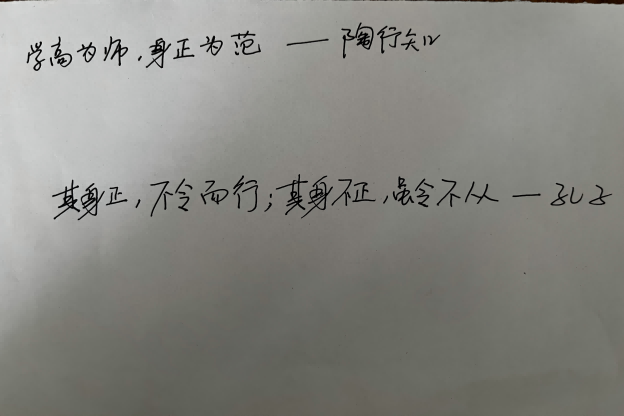 学高为师,身正为范 —— 陶行知
其身正,不令而行;其身不正,虽令不从 — 孔子